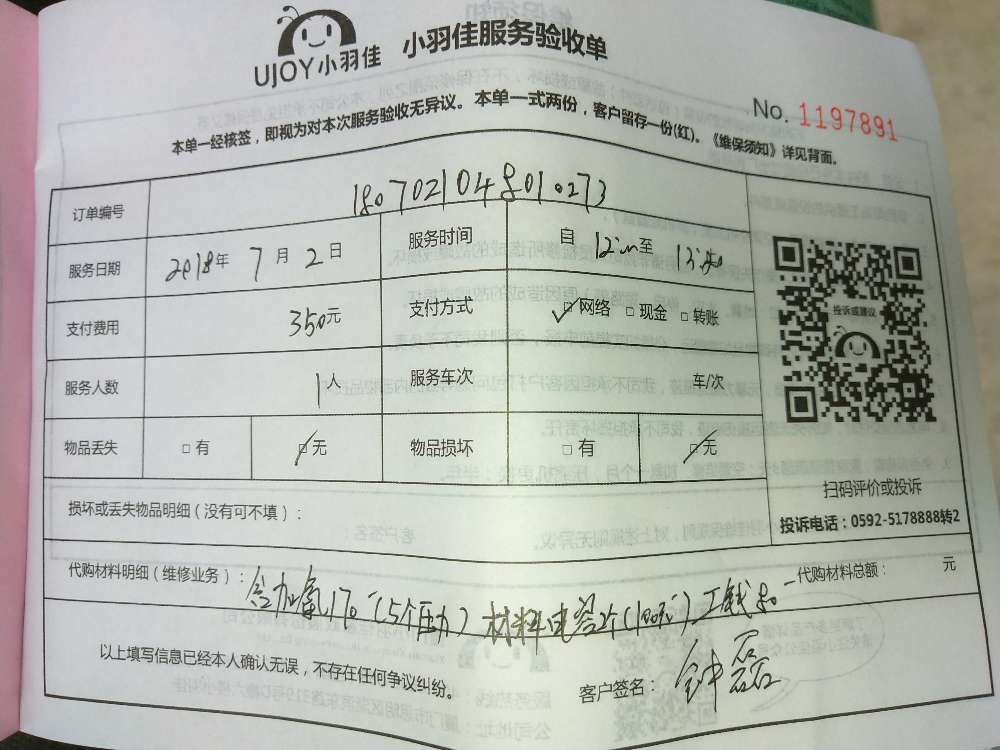 UJOY小羽佳 小羽佳服务验收单
No. 1197891
本单一经核签，即视为对本次服务验收无异议。本单一式两份，客户留存一份(红)。《维保须知》详见背面。
订单编号 180702104801.0273
服务日期 2018年 7月 2日 服务时间 自 至
支付费用 350元 支付方式 网络 现金 转账
投诉或建议
服务人数 1人 服务车次 车/次
物品丢失 有 无 物品损坏 有 无
扫码评价或投诉
损坏或丢失物品明细（没有可不填）：
投诉电话：0592-5178888转2
代购材料明细（维修业务）： 170 (5个压力) 材料电容 工钱80 代购材料总额： 元
以上填写信息已经本人确认无误，不存在任何争议纠纷。
客户签名： 钟磊